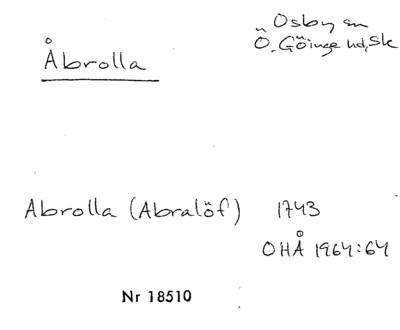 Åbrolla
Osby sn
Ö. Göinge hd, Sk
Abrolla (Abralöf) 1743
OHÅ 1964:64
Nr 18510